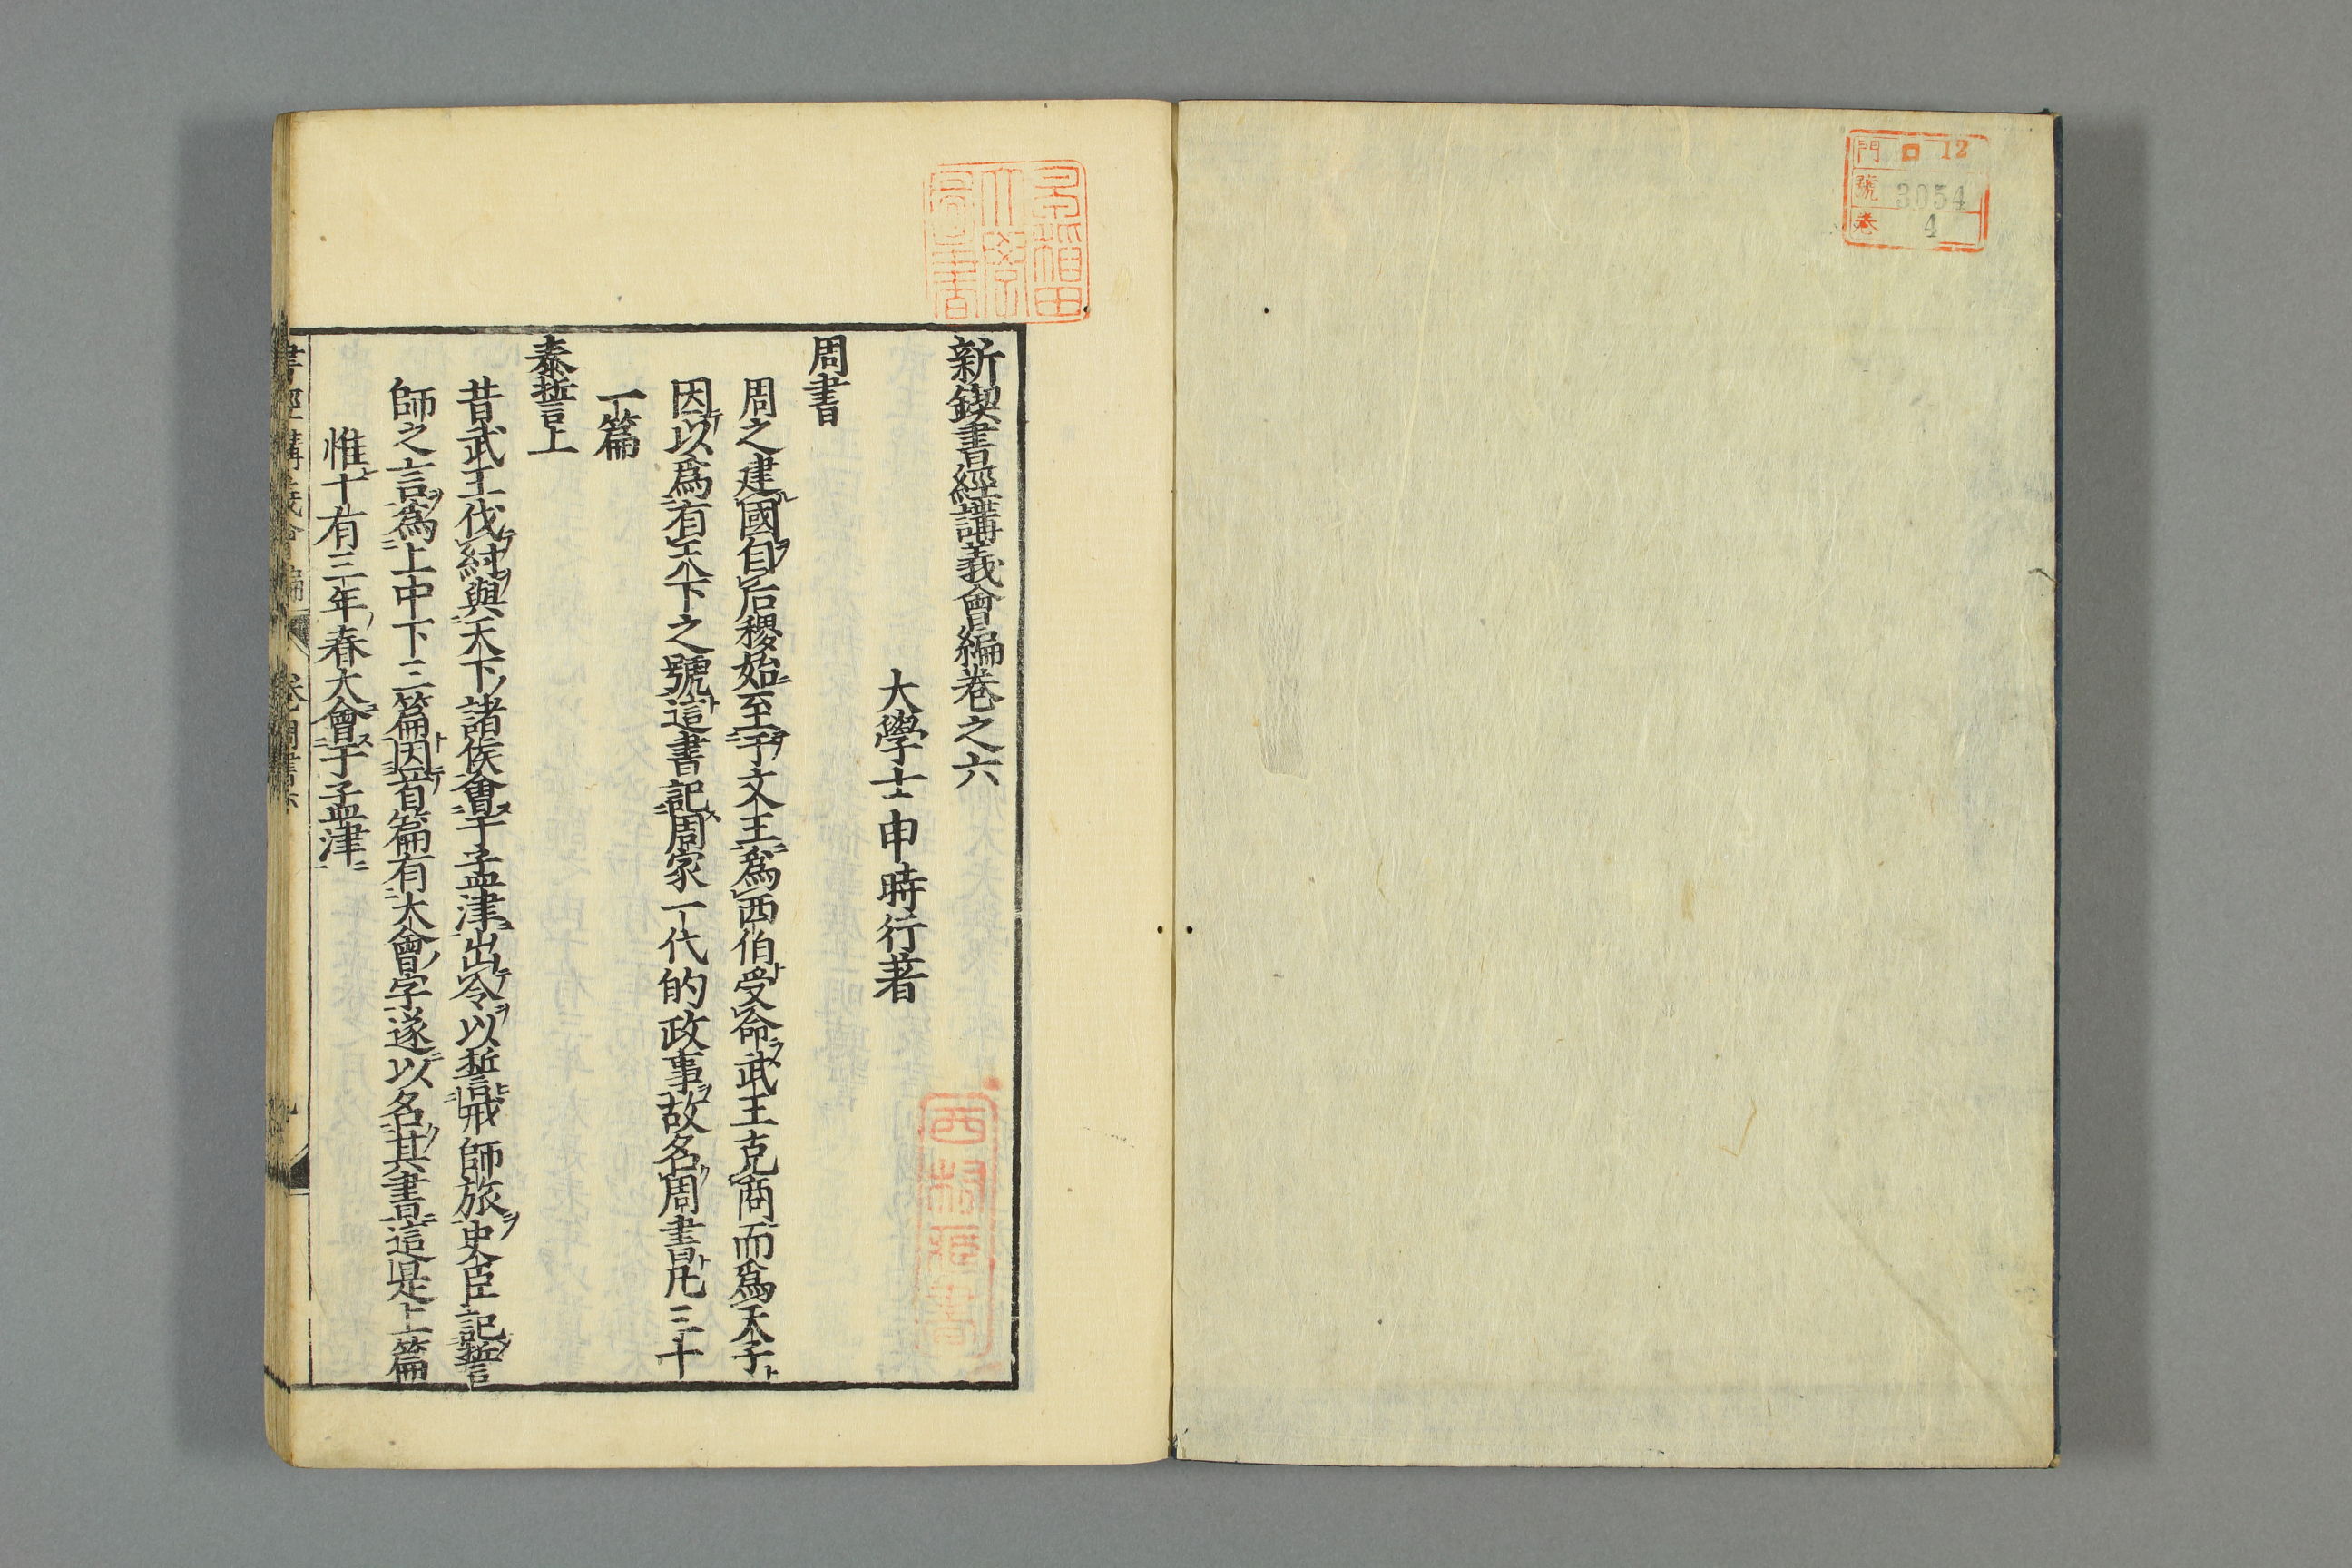 門 ロ 12
號 3054
卷 4
早稲田
大學
圖書
新鍥書經講義會編卷之六
大學士申時行著
周書
周之建國自后稷始至于文王爲西伯受命武王克商而爲天子
因以爲有天下之號這書記周家一代的政事故名周書凡三十
一篇
泰誓上
昔武王伐紂與天下諸侯會于孟津出令以誓戒師旅史臣記誓
師之言爲上中下三篇因首篇有大會字遂以名其書這是上篇
惟十有三年春大會于孟津
書經講義會編 卷 周書 六